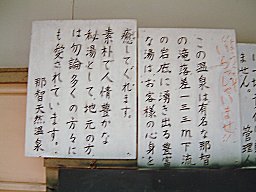 ません。管理人
いらっしゃいませ!!
この温泉は有名な那智
の滝落差一三三m下流
の岩底に湧き出る豊富
な湯はお客様の心身を
癒してくれます。
素朴で人情豊かな
秘湯として、地元の方
は勿論多くの方々に
も愛されています。
那智天然温泉